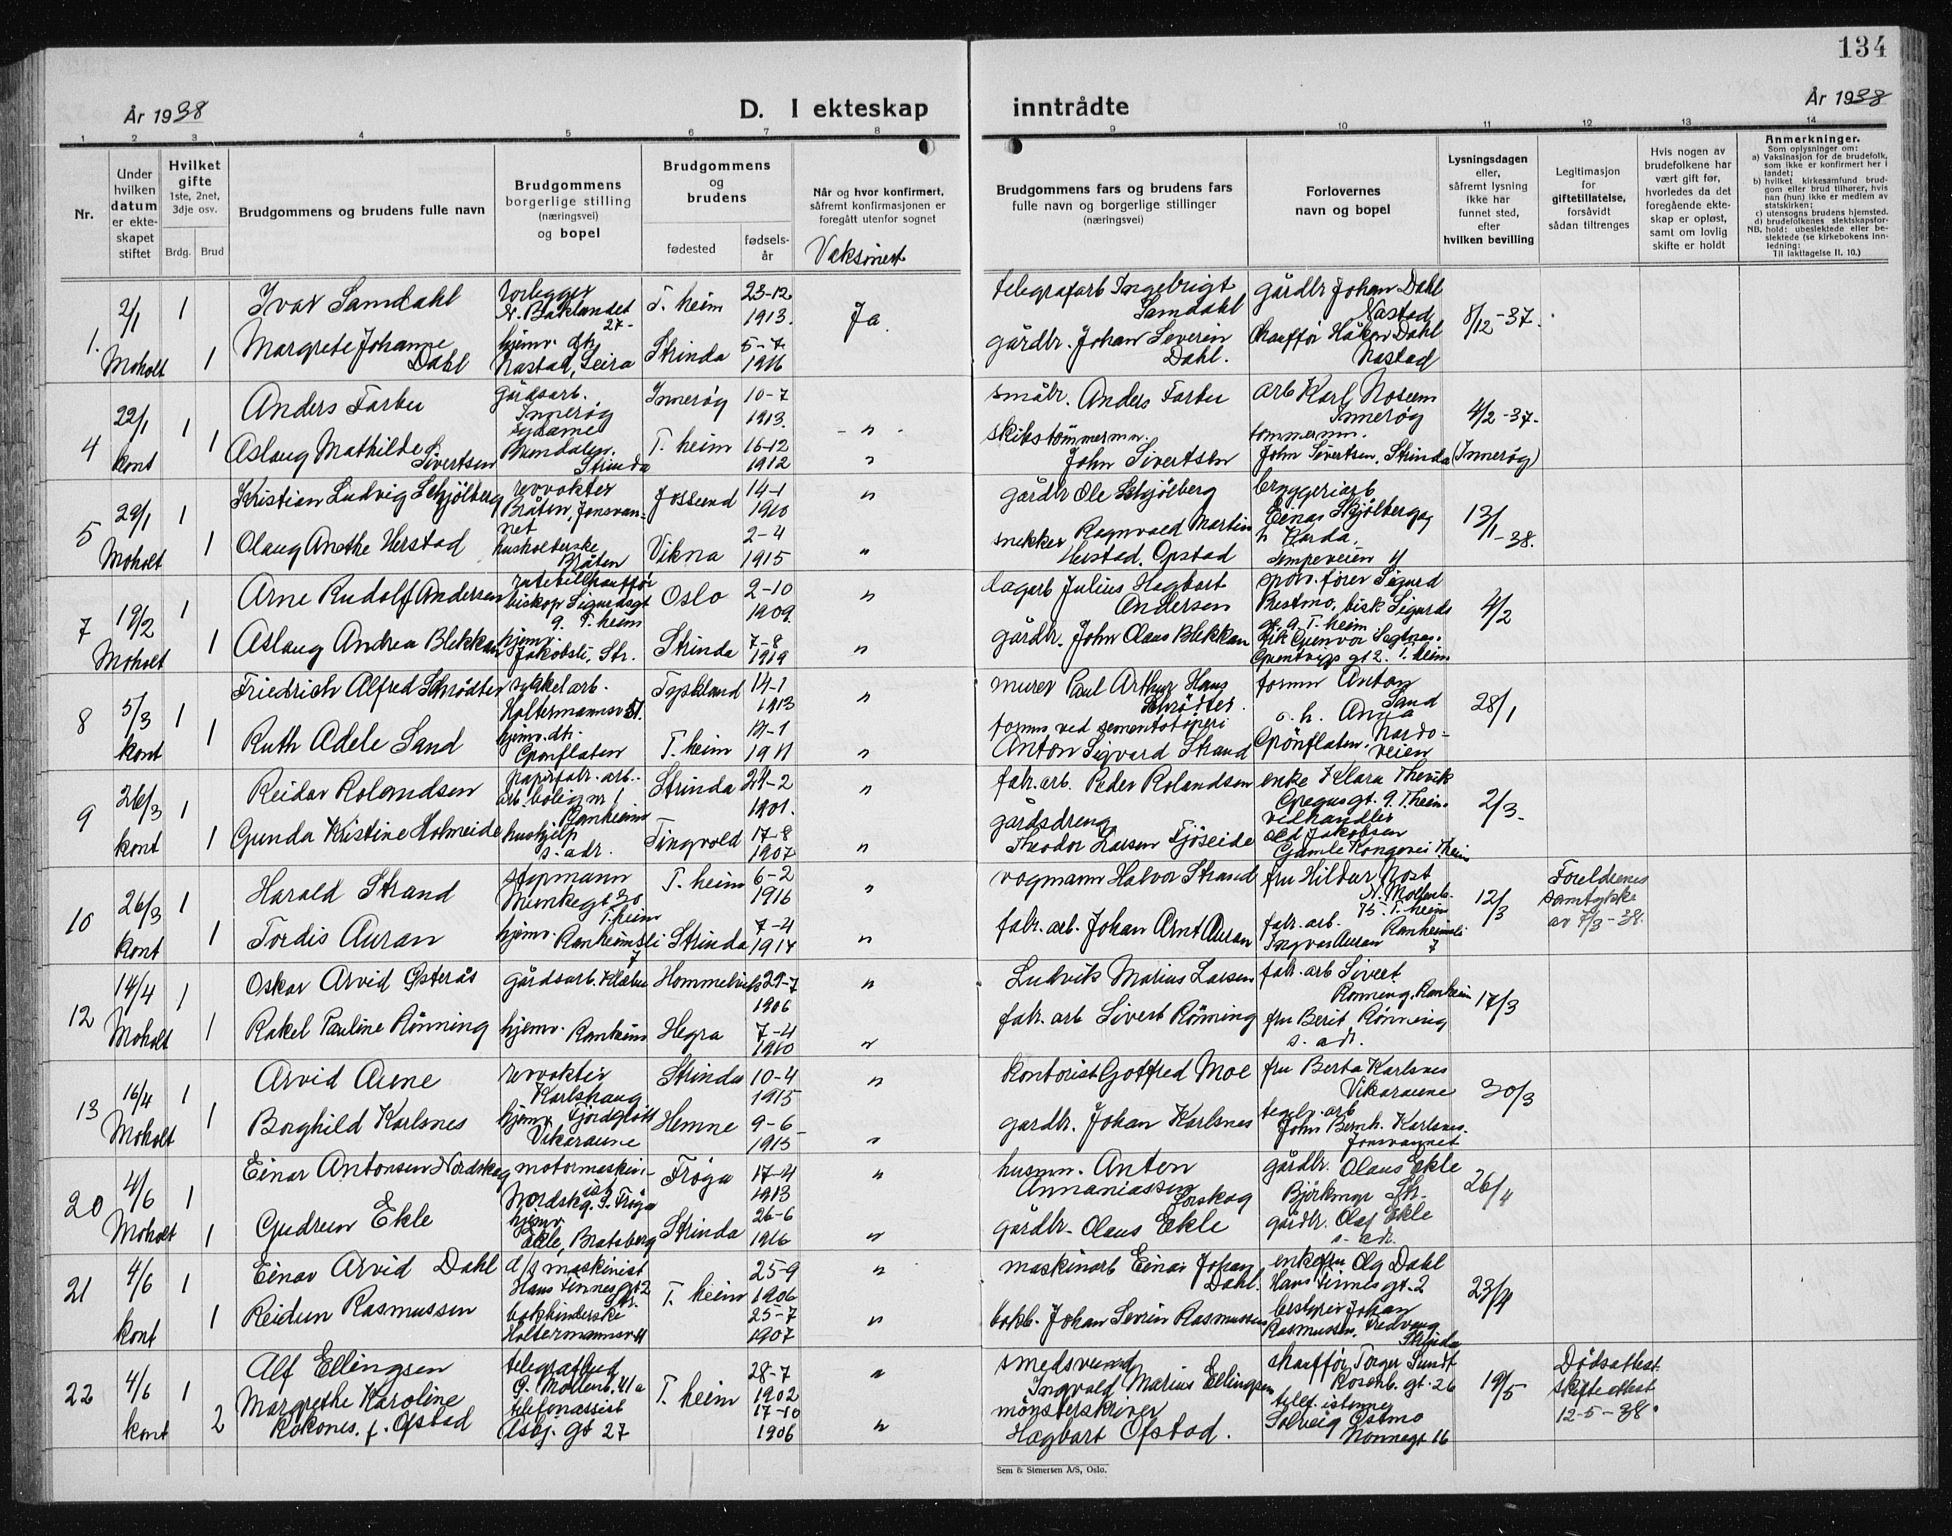 134
År 1938
D. I ekteskap
inntrådte
År 1938
1 2 3 4 5 6 7 8 9 10 11 12 13 14
Nr.
Under
hvilken
datum
er ekte-
skapet
stiftet
Hvilket
gifte
1ste, 2net,
3dje osv.
Brdg. Brud
Brudgommens og brudens fulle navn
Brudgommens
borgerlige stilling
(næringsvei)
og bopel
Brudgommens
og
brudens
fødested
fødsels-
år
Når og hvor konfirmert,
såfremt konfirmasjonen er
foregått utenfor sognet
Brudgommens fars og brudens fars
fulle navn og borgerlige stillinger
(næringsvei)
Forlovernes
navn og bopel
Lysningsdagen
eller,
såfremt lysning
ikke har
funnet sted,
efter
hvilken bevilling
Legitimasjon
for
giftetillatelse,
forsåvidt
sådan tiltrenges
Hvis nogen av
brudefolkene har
vært gift før,
hvorledes da det
foregående ekte-
skap er opløst,
samt om lovlig
skifte er holdt
Anmerkninger.
Som oplysninger om:
a) Vaksinasjon for de brudefolk,
som ikke er konfirmert her i
landet;
b) hvilket kirkesamfund brud-
gom eller brud tilhører, hvis
han (hun) ikke er medlem av
statskirken;
c) utensogns brudens hjemsted.
d) brudefolkenes slektskapsfor-
NB. hold: ubeslektede eller be-
slektede (se kirkebokens inn-
ledning:
Til iakttagelse II. 10.)
1. 2/1 Moholt 1 1
Ivar Samdahl
Margrete Johanne
Dahl
N. Baklandet
27-
Nastad, Leira
T. heim
Strinda
23-12
1913.
5-7
1916
Ja.
telegrafarb Ingebrigt
Samdahl
gårdbr. Johan Severin
Dahl.
gårdbr Johan Dahl
Nastad
Chauffør Håkon Dahl
Nastad
8/12-37.
4 22/1 kont 1 1
Anders Farbu
Aslaug Mathilde
Sivertsen
gårdsarb.
Innerøg
Strinda
Innerøg
T. heim
10-7
1913.
16-12
1912
småbr. Anders Farbu
skibstømmermn.
John Sivertsen
arb Karl
Innerøg
tømmermn.
John Sivertsen, Strinda
4/2-37.
(Innerøg)
5 29/1 Moholt 1 1
Kristian Ludvig Schjølberg
Olaug Anethe Herstad
revvokter
Bråten, Jonsvan-
net
husholderske
Bråten
Vikna
14-1
1910
2-4
1915
gårdbr Ole Schjølberg
snekker Ragnvald Martin
Herstad, Opstad
bryggeriarb
Einar Skjølberg og
h. Karda,
13/1-38.
7 19/2 Moholt 1 1
Arne Rudolf Andersen
Aslaug Andrea Blekkan
rutebilchauffør
biskop Sigurdsgt
9. T. heim
hjemv.
Jakobsli, Str.
Oslo
Strinda
2-10
1909.
7-8
1919
lagerb Julius Hagbart
Andersen
gårdbr. John Olaus Blekkan
spov. fører Sigurd
Prestmo, bisk Sigurds
gt. 9. T. heim
4/2
8 5/3 kont 1 1
Friedrich Alfred Schrødter
Ruth Adele Sand
sykkelarb.
Holtermannsv 51.
hjemv. dtr.
Grønflaten
Tyskland
T. heim
14-1
1913
1911
murer Paul Arthur Hans
Schrødter.
Anton Sigvard Strand
formn Anton
Sand
o. h. Anna
Grønflaten. Nardo-
veien
28/1
9 26/3 kont 1 1
Reidar Rolandsen
Gunda Kristine Holmeide
papirfabr. arb.
arb.bolig nr 1
Ranheim
hushjelp
s. adr.
Strinda
Tingvold
24-2
1901.
17-8
1907
fabr. arb. Peder Rolandsen
gårdsdreng
Theodor Larsen Tjøseide
enke Klara Thevik
gt. 9. T.heim
vedhandler
Jakobsen
Gamle Kongevei T.heim
2/3-
10 26/3 kont 1 1
Harald Strand
Tordis Auran
stopmann
Munkegt 30
T.heim
hjemv. Ranheimsli
7
T. heim
Strinda
6-2
1916
7-4
1914
vognmann Halvor Strand
fabr. arb. Johan Arnt Auran
fru Hildur Nost
N. Møllenb.
75. T. heim
fabr. arb. Ranheimsli
Ingvar Auran 7
12/3
Foreldrenes
samtykke
av 7/3-38.
12 14/4 Moholt 1 1
Oskar Arvid Østerås
Rakel Pauline Rønning
gårdsarb. Klæbu
hjemv. Ranheim
Hommelvik
Hegra
29-7
1906
7-4
1910
Ludvik Marius Larsen
fabr. arb Sivert Rønning
fabr. arb Sivert
Rønning, Ranheim
fru Berit Rønning
s. adr.
17/3
13 16/4 Moholt 1 1
Arvid Aune
Borghild Karlsnes
revvokter
Karlshaug
hjemv.
Vikaraune
Strinda
Hemne
10-4
1915
9-6
1915
kontorist Gotfred Moe
gardbr. Johan Karlsnes
fru Berta Karlsnes
Vikaraune
John Bernh. Karlsnes.
Jonsvannet
30/3
20 4/6 Moholt 1 1
Einar Antonsen Nordskag
Gudrun Ekle
motormaskin-
ist
Nordskag. S. Frøya
hjemv
Ekle, Bratsberg
Frøya
Strinda
17-4
1913
26-6
1916
husmn. Anton
Annaniassen
gårdbr. Olaus Ekle
gårdbr. Olaus Ekle
Str.
gårdbr. Olaf Ekle
s. adr.
26/4
21 4/6 kont 1 1
Einar Arvid Dahl
Reidun Rasmussen
d/s maskinist
Hans Finnesgt 2
Str.
bokbinderske
T. heim
25-9
1906
25-7
1907
maskinarb Einar Johan
Dahl.
bokb. Johan Severin Rasmussen
enkefru Olg Dahl
Hans Finnesgt. 2
bestyrer Johan
Rasmussen,
Strinda
23/4
22 4/6 kont 1 2
Alf Ellingsen
Margrethe Karoline
Rokones, f. Ofstad
telegrafbud
Ø. Møllenb. 41a
telefonassist
Asbj. gt 27
T. heim
28-7
1902
17-10
1906
smedsvend
Ingvald Marius Ellingsen
mønsterskriver
Hagbart Ofstad.
chauffør Torger Sundt
Rosenb. gt. 26
Solveig Østmo
Nonnegt 16
19/5
Dødsattest
skifteattest
12-5-38.
Sem & Stenersen A/S, Oslo.